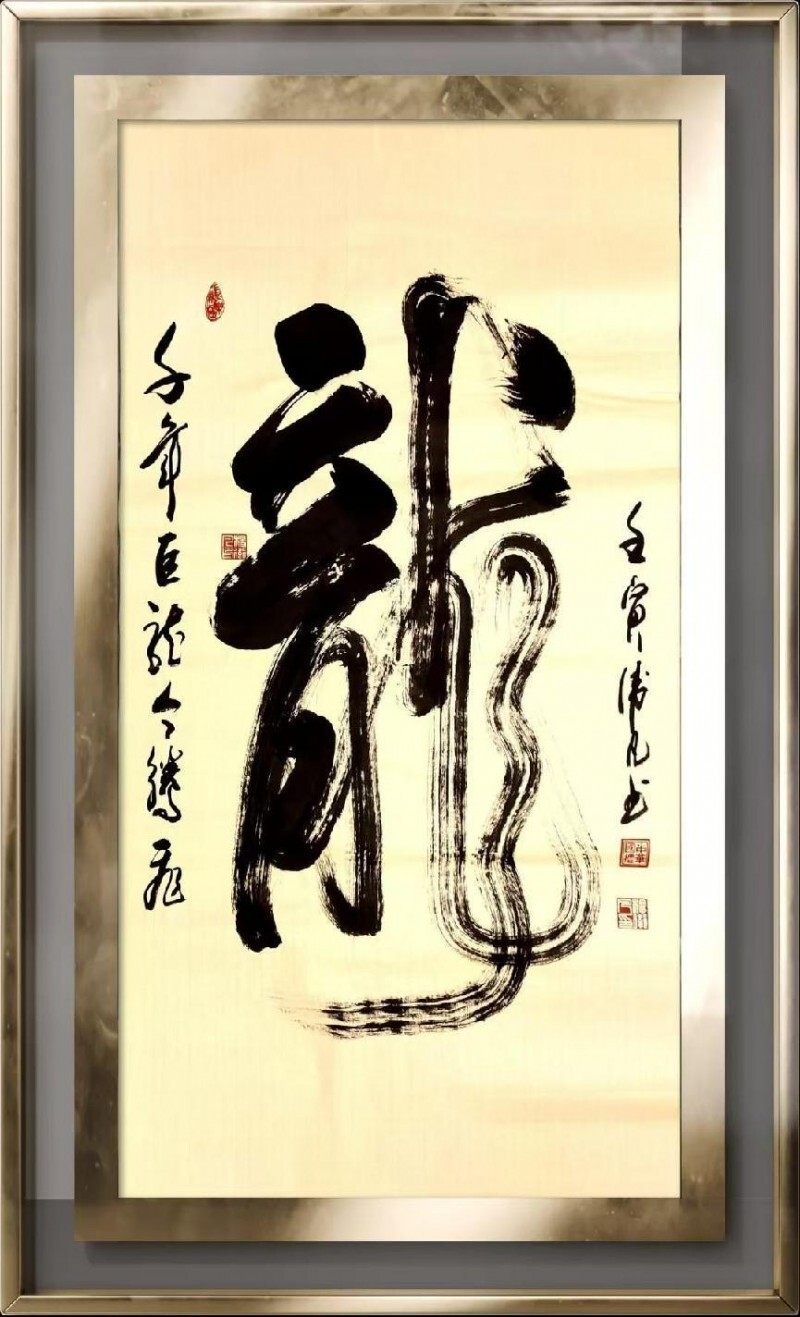 龍
千年巨龍今騰飛
壬寅凡书